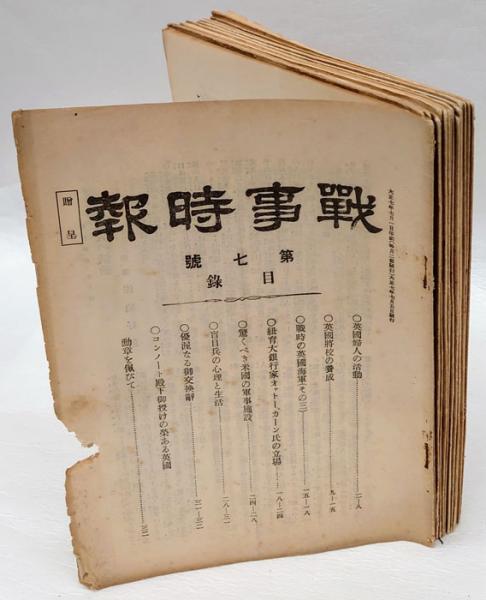 戰事時報
贈呈
第七號
目錄
○英國婦人の活動 一—八
○英國將校の養成 九—一五
○戰時の英國海軍(その三) 一五—一八
○紐育大銀行家オットー、カーン氏の立場 一八—二四
○驚くべき米國の軍事施設 二四—二八
○盲目兵の心理と生活 二八—三一
○優渥なる御交換辭 三一—三二
○コンノート殿下御授けの榮ある英國
勳章を佩びて 三二